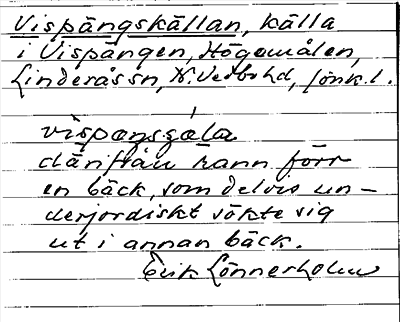 Vispängskällan, källa
i Vispängen, Högemålen,
Linderås sn, N. Vedbo hd, Jönk. l.
därifrån rann förr
en bäck, som delvis un-
derjordiskt sökte sig
ut i annan bäck.
Erik Lönnerholm